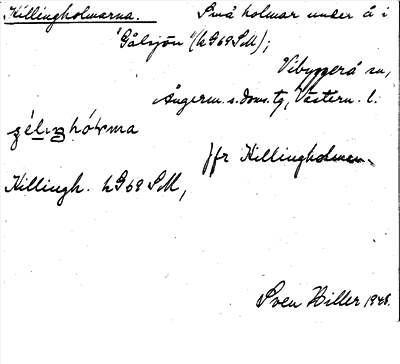 Killingholmarna. Små holmar under å i
"Gålsjön" (hG69SM);
Vibyggerå sn,
Ångerm. s. doms. tg, Västern. l.
Jfr Killingholmen
Killingh. hG69SM,
Sven Hiller 1948.